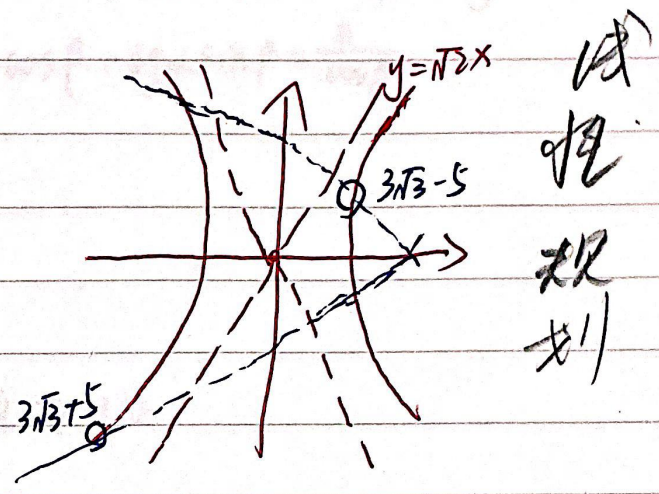 y=√2x
3√3-5
3√3+5
线
性
规
划